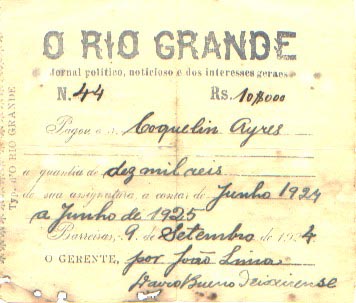 O RIO GRANDE
Jornal politico, noticioso e dos interesses geraes
N. 44 Rs. 10$000
Pagou o s. Coquelin Ayres
a quantia de dez mil reis
de sua assignatura, a contar de Junho 1924
a Junho de 1925
Barreiras, 9 de Setembro de 1924
O GERENTE, por João Lima
David Bueno
Typ. D'O RIO GRANDE